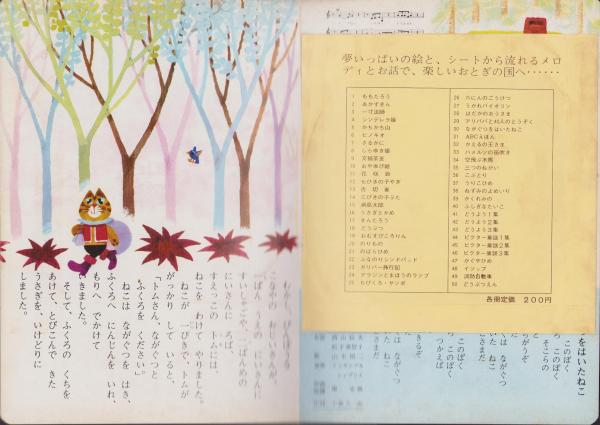 むかし　びんぼうな
こなやの　おじいさんが、
一ばん　うえの　にいさんに
すいしゃごやを、二ばんめの
にいさんに　ろば、
すえっこの　トムには、
ねこを　わけて　やりました。
ねこが　一ぴきで、トムが
がっかり　して　いると、
「トムさん、ながぐつと
ふくろを　ください。」
ねこは　ながぐつを　はき、
ふくろへ　にんじんを　いれ、
もりへ　でかけて
いきました。
そして、ふくろの　くちを
あけて、とびこんで　きた
うさぎを、いけどりに
しました。
夢いっぱいの絵と、シートから流れるメロ
ディとお話で、楽しいおとぎの国へ……
1 ももたろう
2 あかずきん
3 一寸法師
4 シンデレラ姫
5 かちかち山
6 ピノキオ
7 さるかに
8 しらゆき姫
9 文福茶釜
10 おやゆび姫
11 花咲爺
12 七ひきの子やぎ
13 舌切雀
14 三びきの子ぶた
15 浦島太郎
16 うさぎとかめ
17 きんたろう
18 どうぶつ
19 おむすびころりん
20 のりもの
21 のばらひめ
22 ふなのりシンドバッド
23 ガリバー旅行記
24 アラジンとまほうのランプ
25 ちびくろ・サンボ
26 六にんのごうけつ
27 うかれバイオリン
28 はだかのおうさま
29 アリババと40人のとうぞく
30 ながぐつをはいたねこ
31 ABCえほん
32 かえるの王さま
33 ハメルンの笛吹き
34 空飛ぶ木馬
35 三つのねがい
36 こぶとり
37 うりこひめ
38 ねずみのよめいり
39 かくれみの
40 ふしぎなたいこ
41 どうよう1集
42 どうよう2集
43 どうよう3集
44 ビクター童謡1集
45 ビクター童謡2集
46 ビクター童謡3集
47 かぐやひめ
48 イソップ
49 消防自動車
50 どうぶつえん
各冊定価　200円
をはいたねこ
このぼく
このぼく
そこらの